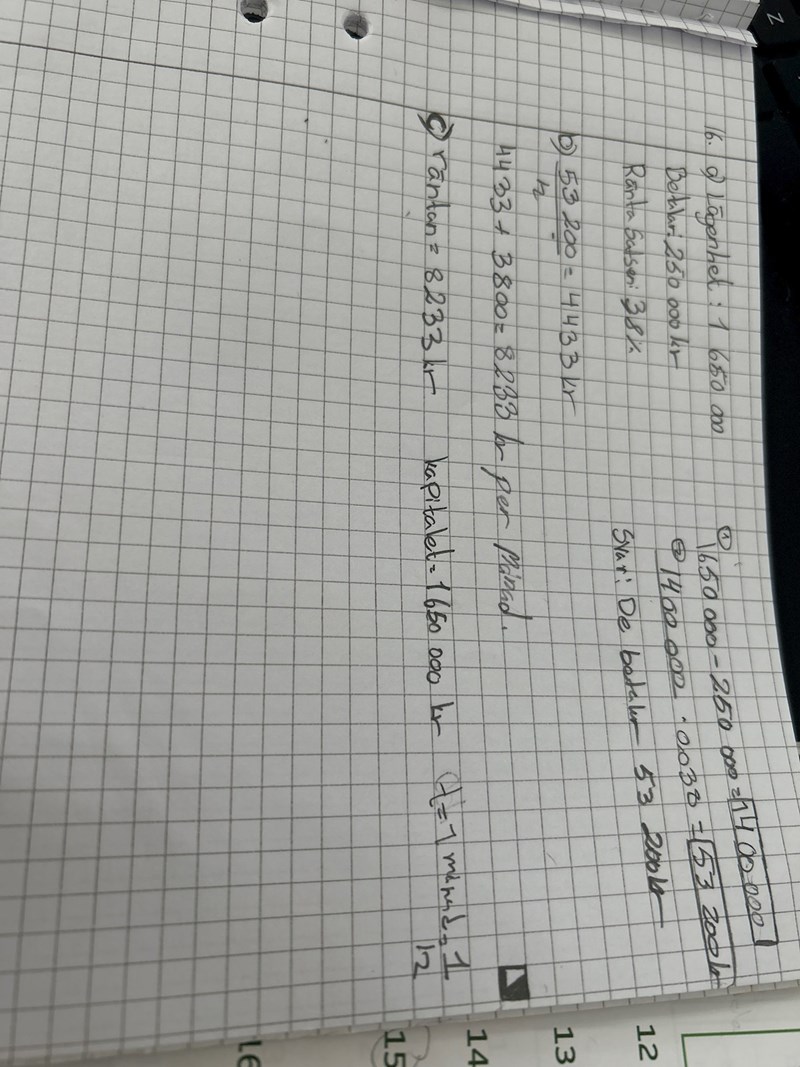 16. a) Lägenhet: 1 650 00
Betalar: 250 000 kr
Ränta Satsen: 3,8%
① 1650 000 - 250 000 = 1400 000
② 1400 000 · 0.038 = 53 200 kr
Svar: De betalar 53 200 kr
b) 53 200 = 4433 kr
12
4433 + 3800 = 8233 kr per Månad.
c) räntan = 8233 kr kapitalet = 1650 000 kr (t = 1 månad = 1
12
12
13
14
15
16
Z